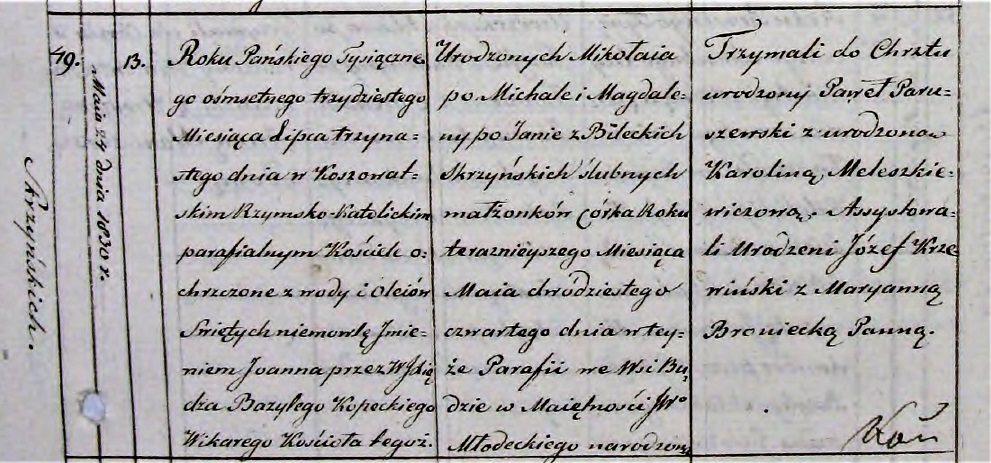 49.
Maia 24 dnia 1830 r.
Skrzyńskich.
13.
Roku Pańskiego Tysiączne-
go ośmsetnego trzydziestego
Miesiąca Lipca trzyna-
stego dnia w Koszowat-
skim Rzymsko-Katolickim
parafialnym Kościele o-
chrzczone z wody i Oleiów
Swiętych niemowlę Jmie-
niem Joanna przez WJXię
dza Bazylego Kopeckiego
Wikarego Kościoła tegoż.
Urodzonych Mikołaia
po Michale i Magdale-
ny po Janie z Bileckich
Skrzyńskich ślubnych
małżonków Córka Roku
teraznieyszego Miesiąca
Maia dwódziestego
czwartego dnia w tey-
że Parafii we Wsi Bu
dzie w Maiętności JWo
Młodeckiego narodzona
Trzymali do Chrztu
urodzony Paweł Paru-
szewski z urodzoną
Karoliną Meleszkie-
wiczową. Assystowa-
li Urodzeni Józef Krze
wiński z Maryanną
Broniecką Panną.